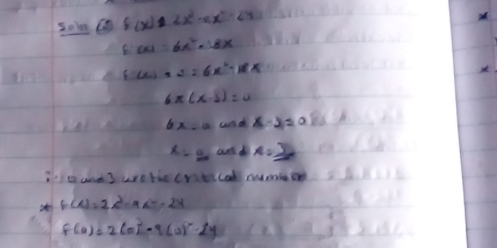 Soln f(x) = 2x³-9x²-24
f'(x) = 6x²-18x
f'(x) = 0 = 6x²-18x
6x(x-3)=0
6x=0 and x-3=0
x=0 and x=3
∴ 0 and 3 are the critical number
* f(x)=2x³-9x²-24
f(0)=2(0)³-9(0)²-24